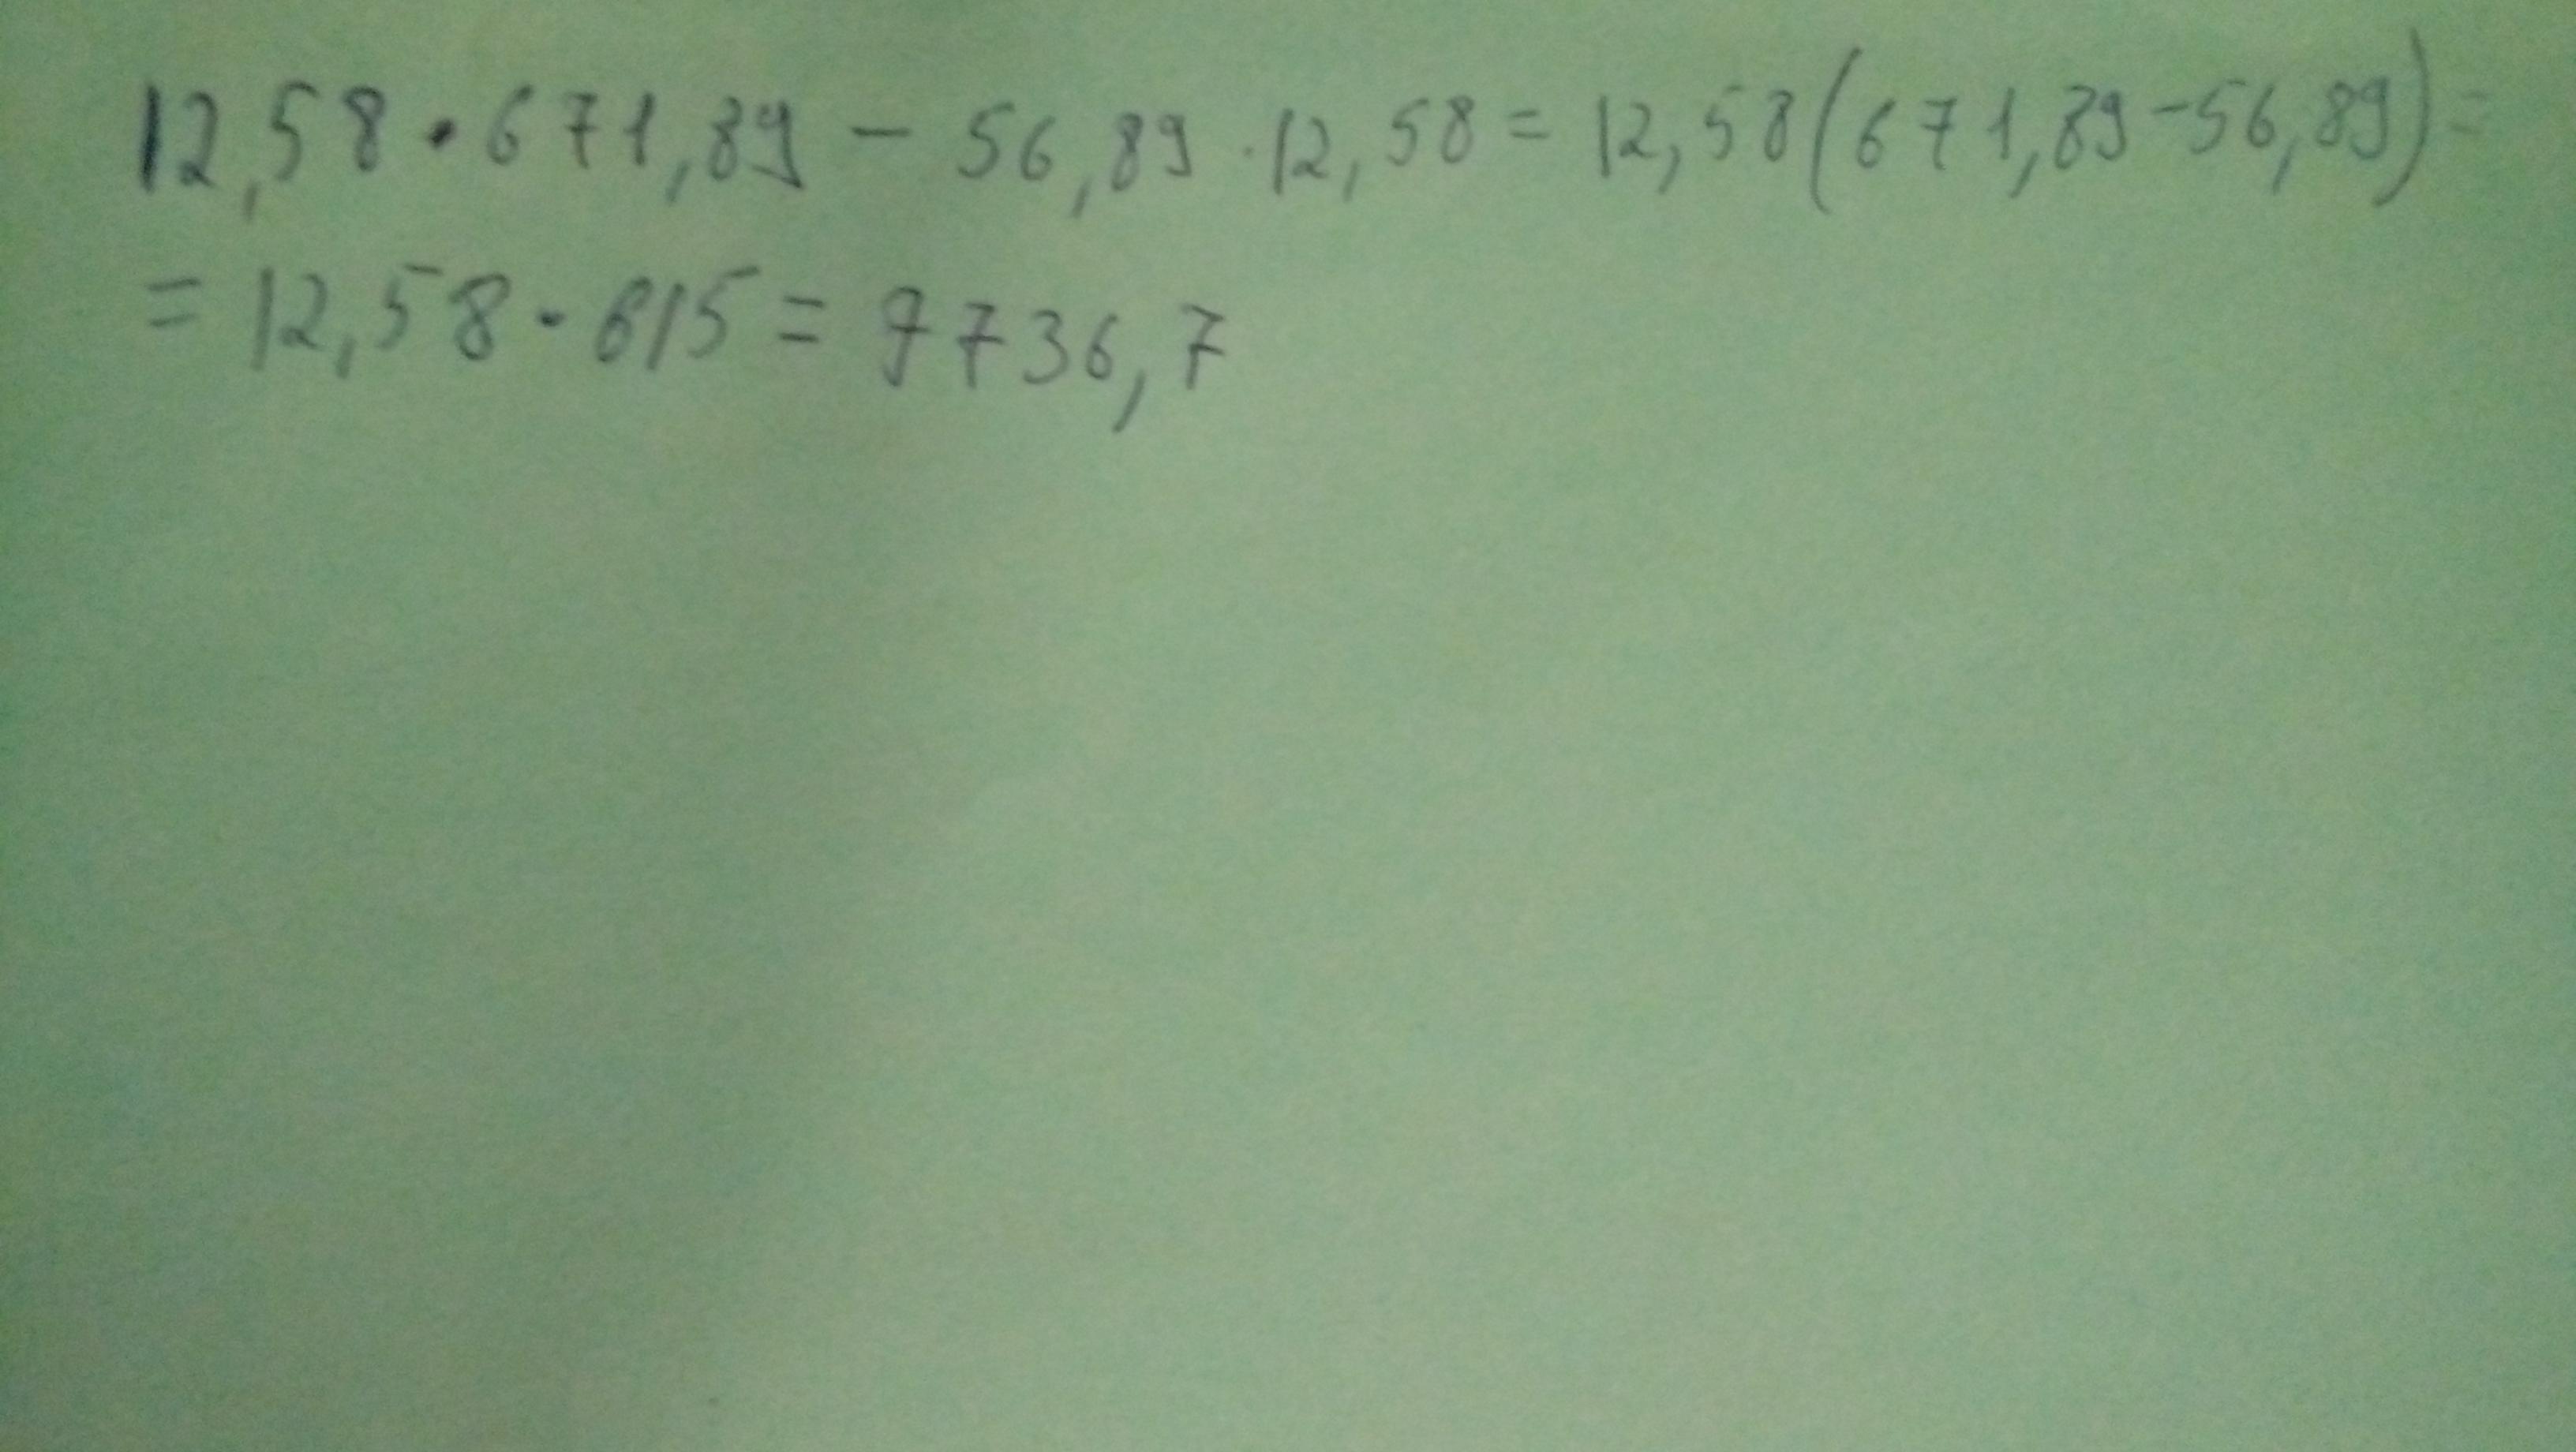 12,58 · 671,89 - 56,89 · 12,58 = 12,58(671,89 - 56,89) =
= 12,58 · 615 = 7736,7